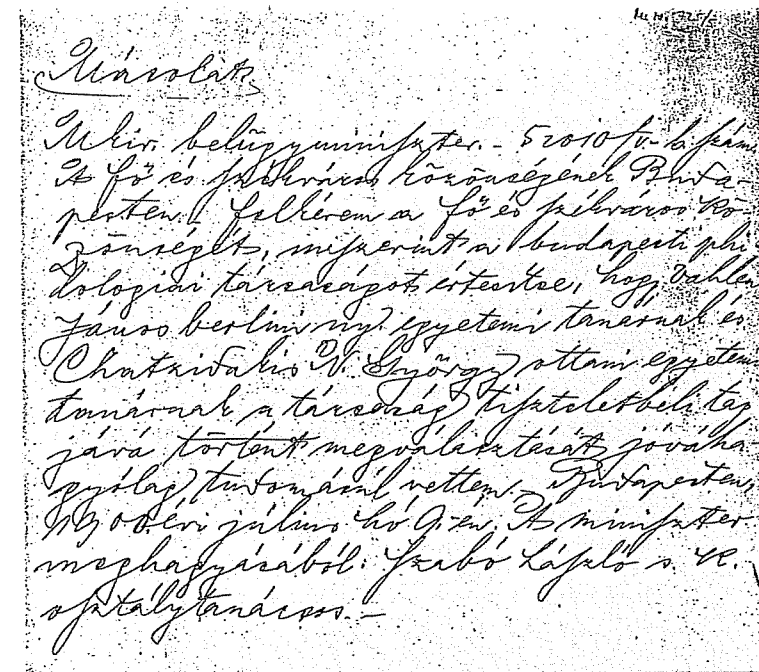 Másolat.
M kir. belügyminiszter. - 52010 sz. - b. szám.
A fő és székváros közönségének Buda-
pesten. Felkérem a fő és székváros kö-
zönségét, miszerint a budapesti phi-
lologiai társaságot értesítse, hogy Vahlen
János berlini ny. egyetemi tanárnak és
Chatzidakis N. György ottani egyetemi
tanárnak a társaság tiszteletbeli tag
jává történt megválasztását jóváha-
gyólag tudomásul vettem. - Budapesten,
1900. évi július hó 9.-én. A miniszter
meghagyásából: Szabó László s. k.
osztálytanácsos. -